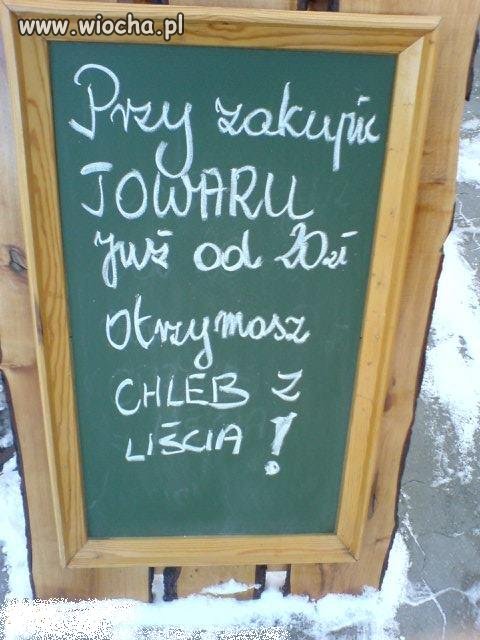 www.wiocha.pl
Przy zakupie
TOWARU
już od 20zł
otrzymasz
CHLEB Z
LIŚCIA!